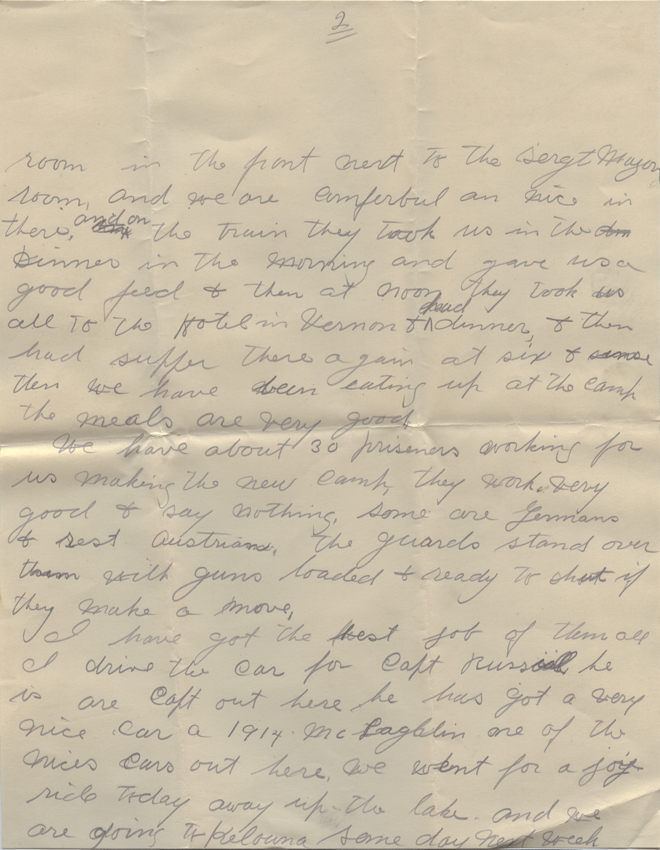 2
room in the front next to the Sergt Major
room, and we are comferbul an nice in
there, and on the train they took us in the
Dinner in the morning and gave us a
good feed & then at noon they took us
all to the Hotel in Vernon & had dinner, & then
had suffer there again at six &
then we have been eating up at the camp
the meals are very good
We have about 30 priseners working for
us making the new camp, they work very
good & say nothing, some are Germans
& rest Austrians, the guards stand over
them with guns loaded & ready to shut if
they make a move,
I have got the best job of them all
I drive the car for Capt Russiall he
is are Capt out here he has got a very
nice car a 1914 McLaghlin one of the
nices cars out here, we went for a joy
ride today away up the lake. and we
are going to Kelowna some day next week